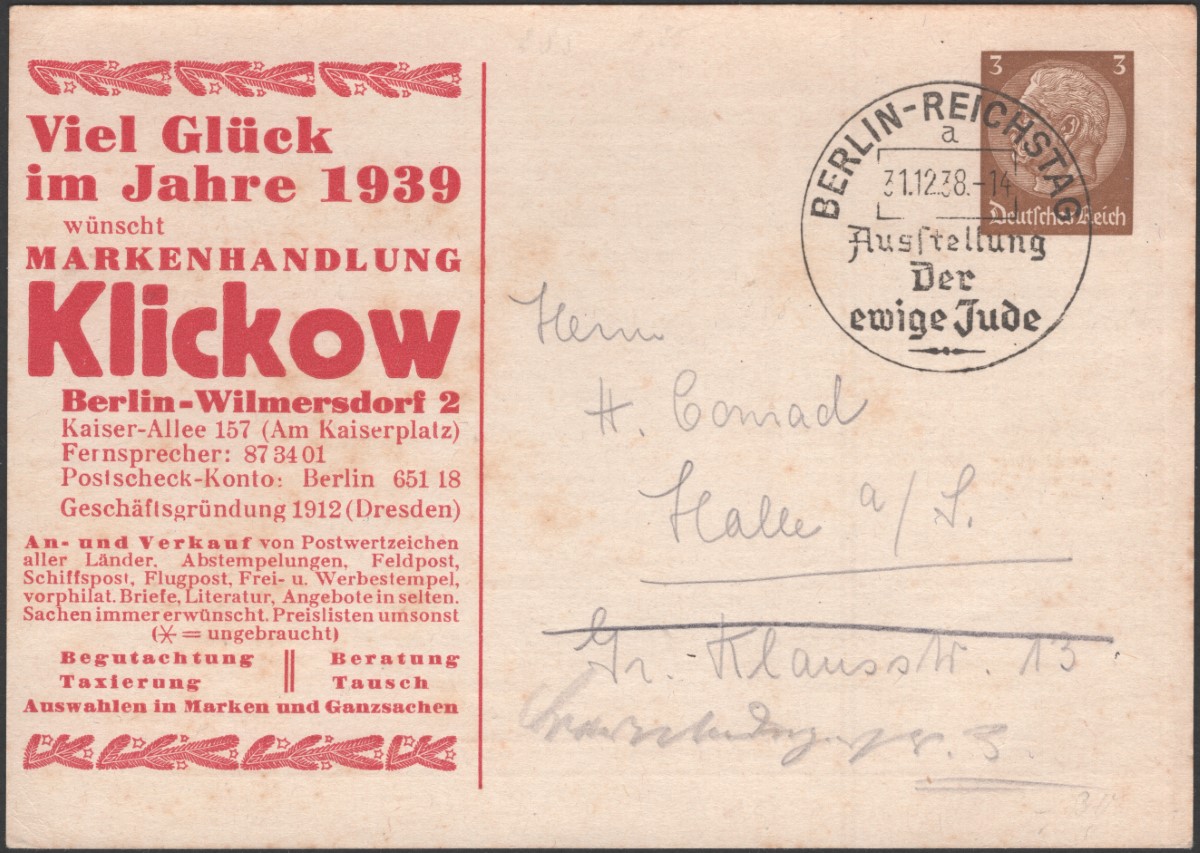 Viel Glück
im Jahre 1939
wünscht
MARKENHANDLUNG
Klickow
Berlin-Wilmersdorf 2
Kaiser-Allee 157 (Am Kaiserplatz)
Fernsprecher: 87 34 01
Postscheck-Konto: Berlin 651 18
Geschäftsgründung 1912 (Dresden)
An- und Verkauf von Postwertzeichen
aller Länder, Abstempelungen, Feldpost,
Schiffspost, Flugpost, Frei- u. Werbestempel,
vorphilat. Briefe, Literatur, Angebote in selten.
Sachen immer erwünscht. Preislisten umsonst
(✳ = ungebraucht)
Begutachtung || Beratung
Taxierung || Tausch
Auswahlen in Marken und Ganzsachen
3 3
Deutsches Reich
BERLIN-REICHSTAG
a
31.12.38.-14
Ausstellung
Der
ewige Jude
Herrn
H. Conrad
Halle a/S.
Gr. Klausstr. 13